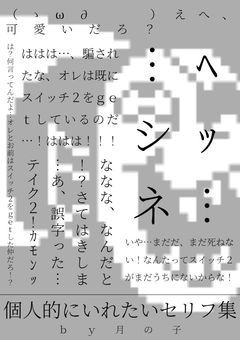 (ゝω∂　　　　)えへ、
可愛いだろ?
ははは…、騙され
たな、オレは既に
スイッチ2をge
tしているのだ
…!ははは!!!
ヘッ…
…シネ
は?何言ってんだよ…オレとお前はスイッチ2をgetした仲だろ!?
ななな、なんだと
!?さてはきしま
…あ、誤字った…
テイク2!カモンッ
いや…まだだ、まだ死ねな
い!なんたってスイッチ2
がまだうちにないからな!
個人的にいれたいセリフ集
by月の子